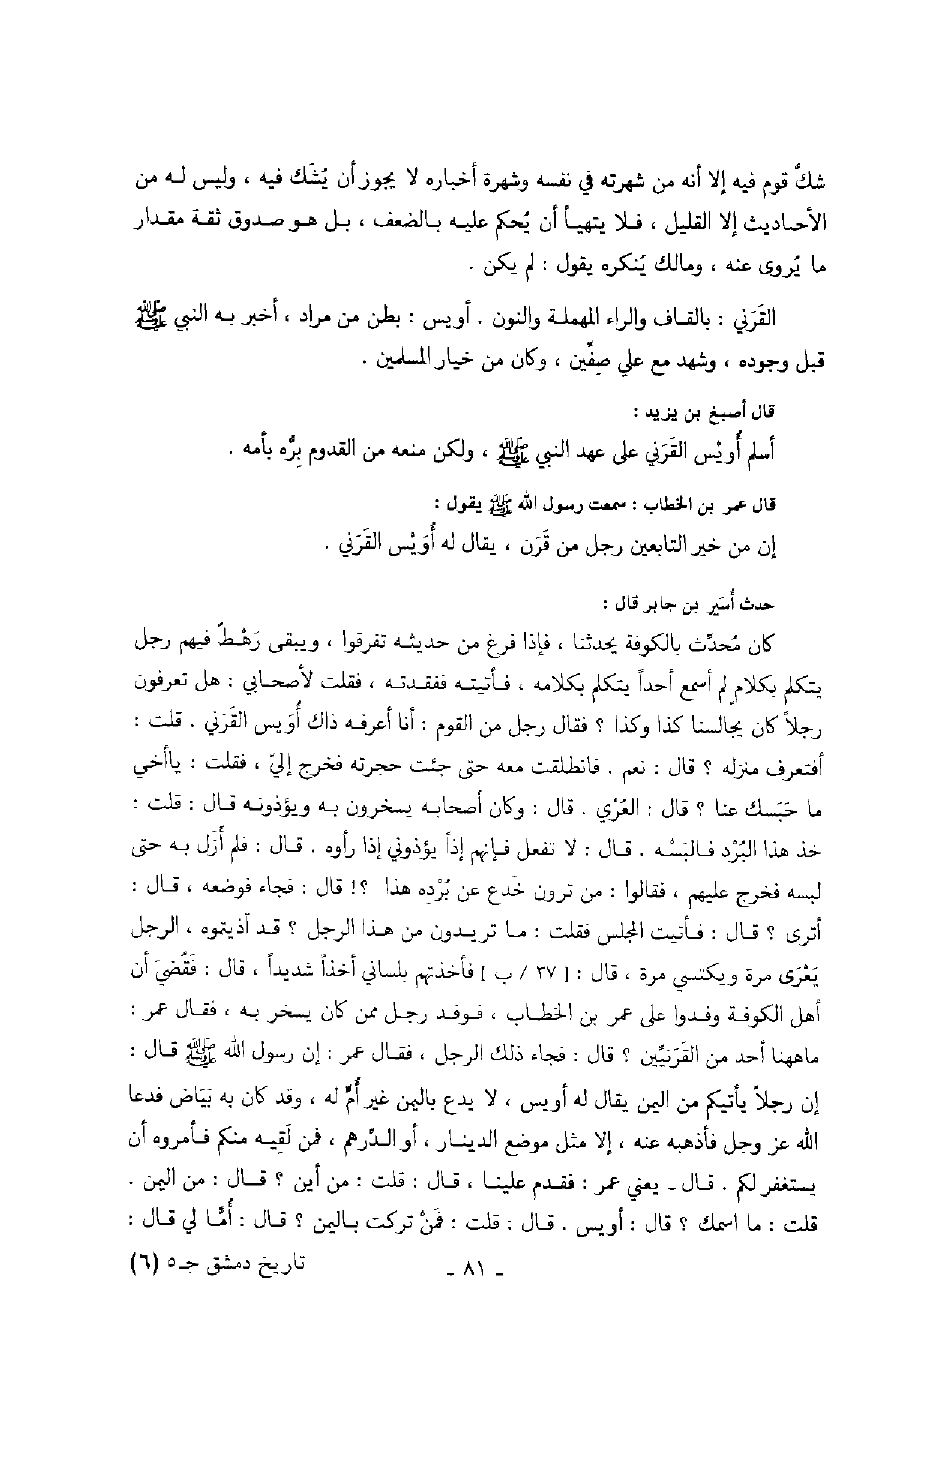 شكَّ قوم فيه إلا أنه من شهرته في نفسه وشهرة أخباره لا يجوز أن يُشَك فيه ، وليس لـه من
الأحـاديث إلا القليل ، فـلا يتهيـأ أن يُحكم عليـه بـالضعف ، بـل هـو صـدوق ثقـة مقـدار
ما يُروى عنه ، ومالك يُنكره يقول : لم يكن .
القَرَني : بالقـاف والراء المهملـة والنون . أويس : بطن من مراد ، أخبر بـه النبي ﷺ
قبل وجوده ، وشهد مع علي صِفّين ، وكان من خيار المسلمين .
قال أصبغ بن يزيد :
أسلم أُويْس القَرَني على عهد النبي ﷺ ، ولكن منعه من القدوم بِرُّه بأمه .
قال عمر بن الخطاب : سمعت رسول الله ﷺ يقول :
إن من خير التابعين رجل من قَرَن ، يقال له أُوَيْس القَرَني .
حدث أُسَير بن جابر قال :
كان مُحدّث بالكوفة يحدثنا ، فإذا فرغ من حديثـه تفرقوا ، ويبقى رَهْـطٌ فيهم رجل
يتكلم بكلامٍ لم أسمع أحداً يتكلم بكلامه ، فـأتيتـه ففقـدتـه ، فقلت لأصحـابي : هل تعرفون
رجلاً كان يجالسنا كذا وكذا ؟ فقال رجل من القوم : أنا أعرفـه ذاك أُوَيس القَرَني . قلت :
أفتعرف منزله ؟ قال : نعم . فانطلقت معه حتى جئت حجرته فخرج إليّ ، فقلت : ياأخي
ما حَبَسك عنا ؟ قال : العُرْي . قال : وكان أصحابـه يسخرون بـه ويؤذونـه قـال : قلت :
خذ هذا البُرْد فـالبَسْـه . قـال : لا تفعل فـإنهم إذاً يؤذوني إذا رأوه . قـال : فلم أَزَل بـه حتى
لبسه فخرج عليهم ، فقالوا : من ترون خُدع عن بُرْده هذا ؟! قال : فجاء فوضعه ، قـال :
أترى ؟ قـال : فـأتيت المجلس فقلت : مـا تريـدون من هـذا الرجل ؟ قـد آذيتوه ، الرجل
يَعْرَى مرة ويكتسي مرة ، قال : [ ٣٧ / ب ] فأخذتهم بلساني أخذاً شديداً ، قال : فَقُضيَ أن
أهل الكوفـة وفـدوا على عمر بن الخطـاب ، فـوفـد رجـل ممن كان يسخر بـه ، فقـال عمر :
ماههنا أحد من القَرَنيِّين ؟ قال : فجاء ذلك الرجل ، فقـال عمر : إن رسول الله ﷺ قـال :
إن رجلاً يأتيكم من الين يقال له أويس ، لا يدع بالين غير أُمٍّ له ، وقد كان به بَيَاض فدعا
الله عز وجل فأذهبه عنه ، إلا مثل موضع الدينـار ، أو الـدِّرهم ، فمن لَقِيـه منكم فـأمروه أن
يستغفر لكم . قـال ـ يعني عمر : فقـدم علينـا ، قـال : قلت : من أين ؟ قـال : من الين .
قلت : ما اسمك ؟ قال : أويس . قـال : قلت : فَمَنْ تركت بـالين ؟ قـال : أُمَّـا لي قـال :
ـ ٨١ ـ
تاريخ دمشق جـ٥ (٦)